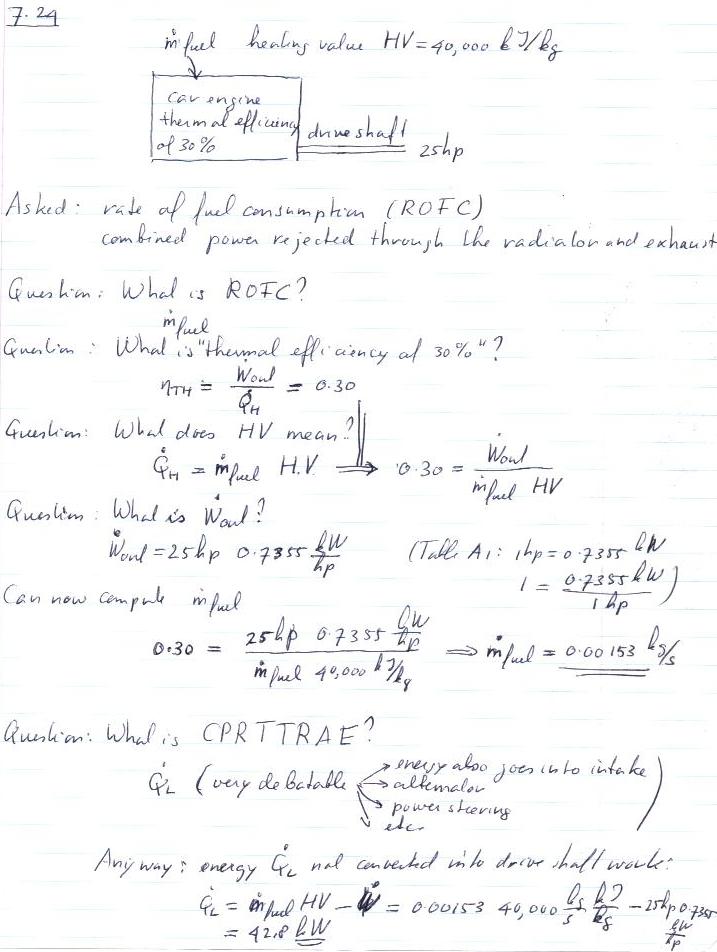 7.24
ṁfuel heating value HV=40,000 kJ/kg
car engine
thermal efficiency
of 30%
drive shaft
25hp
Asked: rate of fuel consumption (ROFC)
combined power rejected through the radiator and exhaust
Question: What is ROFC?
ṁfuel
Question: What is "thermal efficiency of 30%"?
ηTH = Ẇout / Q̇H = 0.30
Question: What does HV mean?
Q̇H = ṁfuel H.V. ⟹ 0.30 = Ẇout / ṁfuel HV
Question: What is Ẇout?
Ẇout = 25hp 0.7355 kW/hp (Table A1: 1hp = 0.7355 kW
1 = 0.7355 kW / 1 hp)
Can now compute ṁfuel
0.30 = 25hp 0.7355 kW/hp / ṁfuel 40,000 kJ/kg ⟹ ṁfuel = 0.00153 kg/s
Question: What is CPRTTRAE?
Q̇L (very debatable → energy also goes into intake
→ alternator
→ power steering
→ etc.)
Anyway: energy Q̇L not converted into drive shaft work:
Q̇L = ṁfuel HV - Ẇ = 0.00153 40,000 kg/s kJ/kg - 25hp 0.7355 kW/hp
= 42.8 kW